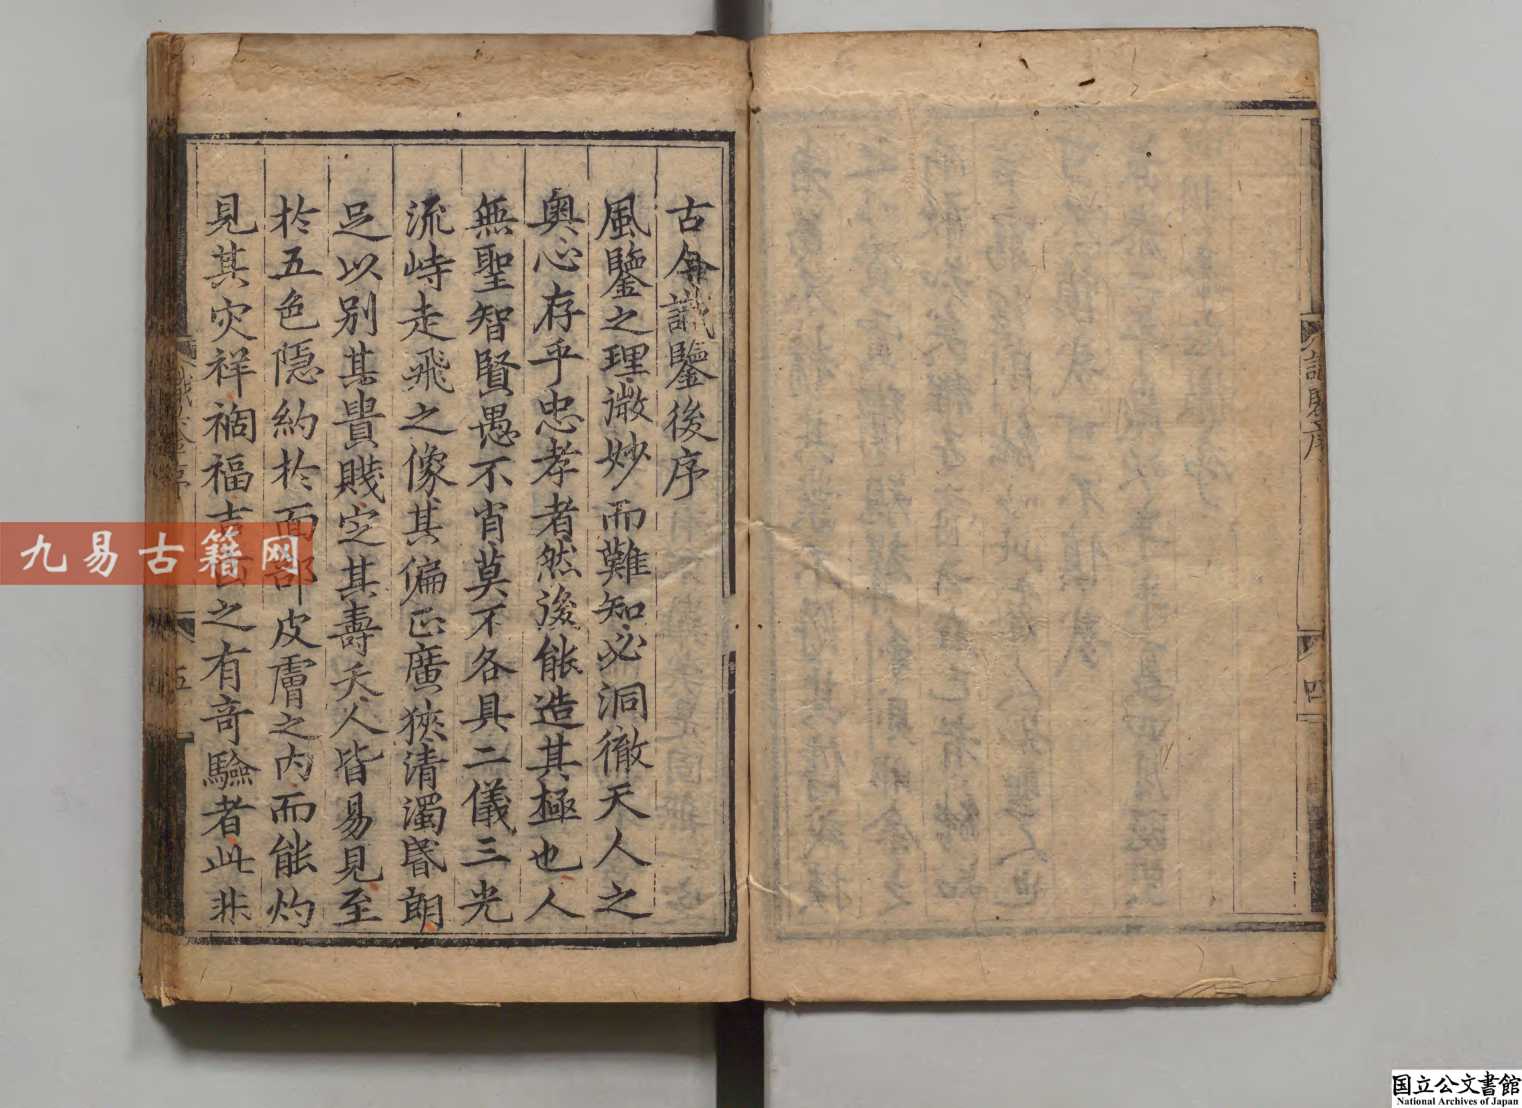 古今識鑒後序
風鑒之理微妙而難知必洞徹天人之
奥心存乎忠孝者然後能造其極也人
無聖智賢愚不肖莫不各具二儀三光
流峙走飛之像其偏正廣狹清濁昬朗
足以别其貴賤定其壽夭人皆易見至
於五色隱約於面部皮膚之内而能灼
見其灾祥禍福吉凶之有奇驗者此非
識鑒序
五
四
九易古籍网
国立公文書館
National Archives of Japan